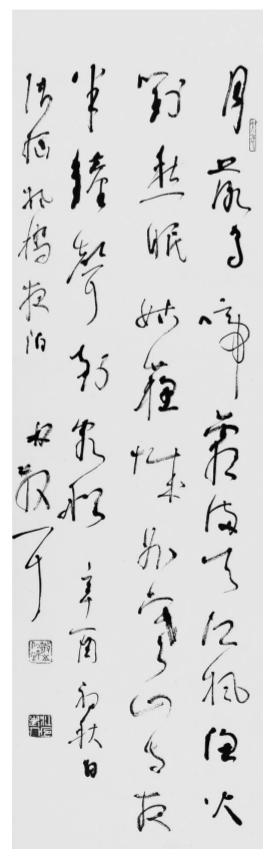 月落烏啼霜滿天江楓漁火
對愁眠姑蘇城外寒山寺夜
半鐘聲到客船 辛酉初秋日
張繼楓橋夜泊